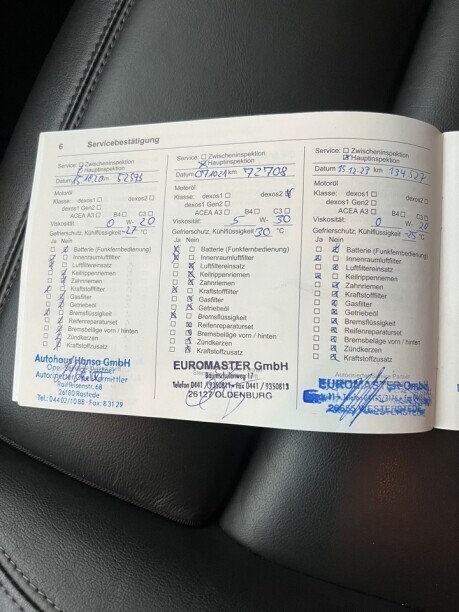 6 Servicebestätigung
Service: Zwischeninspektion
Hauptinspektion
Datum 15.11.20 km 52573
Motoröl
Klasse: dexos1 dexos2
dexos1 Gen2
ACEA A3 B4 C3
Viskosität: 0 W- 20
Gefrierschutz, Kühlflüssigkeit -27 °C
Ja Nein
Batterie (Funkfernbedienung)
Innenraumluftfilter
Luftfiltereinsatz
Keilrippenriemen
Zahnriemen
Kraftstofffilter
Gasfilter
Getriebeöl
Bremsflüssigkeit
Reifenreparaturset
Bremsbeläge vorn / hinten
Zündkerzen
Kraftstoffzusatz
Autohaus Hansa GmbH
Opel-Service-Partner
Raiffeisenstr. 68
26180 Rastede
Tel.: 0 44 02 / 10 88 · Fax: 8 31 29
Service: Zwischeninspektion
Hauptinspektion
Datum 07.10.21 km 72708
Motoröl
Klasse: dexos1 dexos2
dexos1 Gen2
ACEA A3 B4 C3
Viskosität: 5 W- 30
Gefrierschutz, Kühlflüssigkeit 30 °C
Ja Nein
Batterie (Funkfernbedienung)
Innenraumluftfilter
Luftfiltereinsatz
Keilrippenriemen
Zahnriemen
Kraftstofffilter
Gasfilter
Getriebeöl
Bremsflüssigkeit
Reifenreparaturset
Bremsbeläge vorn / hinten
Zündkerzen
Kraftstoffzusatz
EUROMASTER GmbH
Telefon 0441 / 9350811 · Fax 0441 / 9350813
26127 OLDENBURG
Service: Zwischeninspektion
Hauptinspektion
Datum 15.12.23 km 134527
Motoröl
Klasse: dexos1 dexos2
dexos1 Gen2
ACEA A3 B4 C3
Viskosität: 0 W- 20
Gefrierschutz, Kühlflüssigkeit -25 °C
Ja Nein
Batterie (Funkfernbedienung)
Innenraumluftfilter
Luftfiltereinsatz
Keilrippenriemen
Zahnriemen
Kraftstofffilter
Gasfilter
Getriebeöl
Bremsflüssigkeit
Reifenreparaturset
Bremsbeläge vorn / hinten
Zündkerzen
Kraftstoffzusatz
EUROMASTER GmbH
26655 WESTERSTEDE